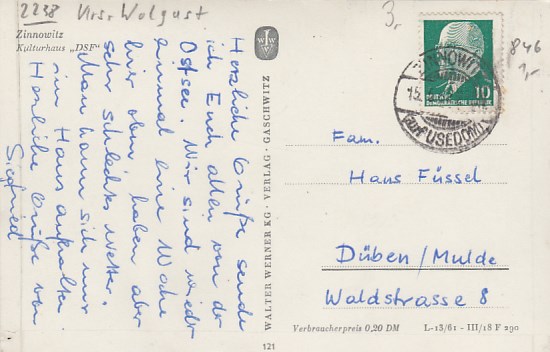 2238 Krs. Wolgast
Zinnowitz
Kulturhaus „DSF"
Herzliche Grüße sende
ich Euch allen von der
Ostsee. Wir sind wieder
einmal eine Woche
hier oben haben aber
sehr schlechtes Wetter.
Man kann sich nur
im Haus aufhalten.
Herzliche Grüße von
Siegfried
WALTER WERNER KG · VERLAG · GASCHWITZ
121
3,-
846
1,-
10
DEUTSCHE
DEMOKRATISCHE REPUBLIK
ZINNOWITZ
15.
auf USEDOM
Fam.
Hans Füssel
Düben/Mulde
Waldstrasse 8
Verbraucherpreis 0,20 DM L-13/61 - III/18 F 290